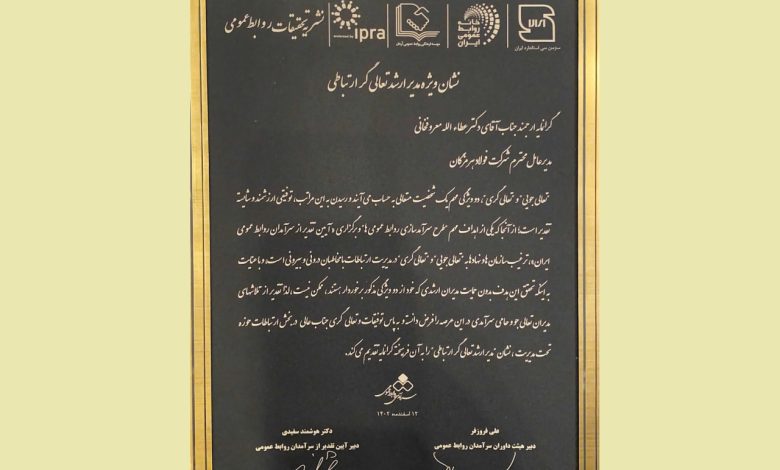 سازمان ملی استاندارد ایران
خانه
روابط
عمومی
ایران
موسسه فرهنگی روابط عمومی آرمان
ipra
نشریه تحقیقات روابط عمومی
نشان ویژه مدیر ارشد تعالی گر ارتباطی
گرانمایه ارجمند جناب آقای دکتر عطاء اله معروفخانی
مدیرعامل محترم شرکت فولاد هرمزگان
"تعالی جویی" و "تعالی گری"؛ دو ویژگی مهم یک شخصیت متعالی به حساب می آیند و رسیدن به این مراتب، توفیقی ارزشمند و شایسته
تقدیر است؛ از آنجا که یکی از اهداف مهم طرح سرآمدسازی روابط عمومی ها و برگزاری «آیین تقدیر از سرآمدان روابط عمومی
ایران»، ترغیب سازمان ها و نهادها به "تعالی جویی" و "تعالی گری" در مدیریت ارتباطات با مخاطبان درونی و بیرونی است، و با عنایت
به اینکه تحقق این هدف بدون حمایت مدیران ارشدی که خود از دو ویژگی مذکور برخوردار هستند، ممکن نیست، لذا تقدیر از تلاشهای
مدیران تعالی جو و حامی سرآمدی در این عرصه را فرض دانسته و به پاس توفیقات و تعالی گری جناب عالی در بخش ارتباطات حوزه
تحت مدیریت، نشان "مدیر ارشد تعالی گر ارتباطی" را به آن فرهیخته گرانمایه تقدیم می کند.
۱۲ اسفندماه ۱۴۰۲
علی فروزفر
دبیر هیئت داوران سرآمدان روابط عمومی
دکتر هوشمند سفیدی
دبیر آیین تقدیر از سرآمدان روابط عمومی